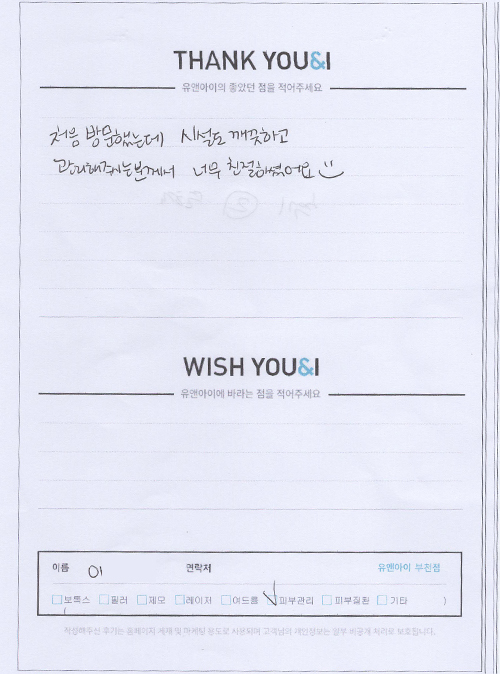 THANK YOU&I
유앤아이의 좋았던 점을 적어주세요
처음 방문했는데 시설도 깨끗하고
관리해주시는분께서 너무 친절하셨어요
WISH YOU&I
유앤아이에 바라는 점을 적어주세요
이름 이 연락처 유앤아이 부천점
보톡스 필러 제모 레이저 여드름 피부관리 피부질환 기타 )
작성해주신 후기는 홈페이지 게재 및 마케팅 용도로 사용되며 고객님의 개인정보는 일부 비공개 처리로 보호됩니다.